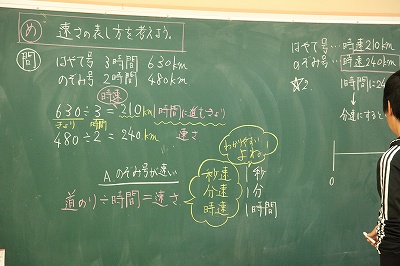 め 速さの表し方を考えよう。
問 はやて号 3時間 630km
のぞみ号 2時間 480km
時速
630÷3=210km 1時間に進むきょり
きょり 時間
480÷2=240km 速さ
A. のぞみ号が速い
道のり÷時間=速さ
わかりやすい
よね!
秒速 1秒
分速 1分
時速 1時間
はやて号…時速210km
のぞみ号…時速240km
☆2.
1時間に24
分速にすると
0